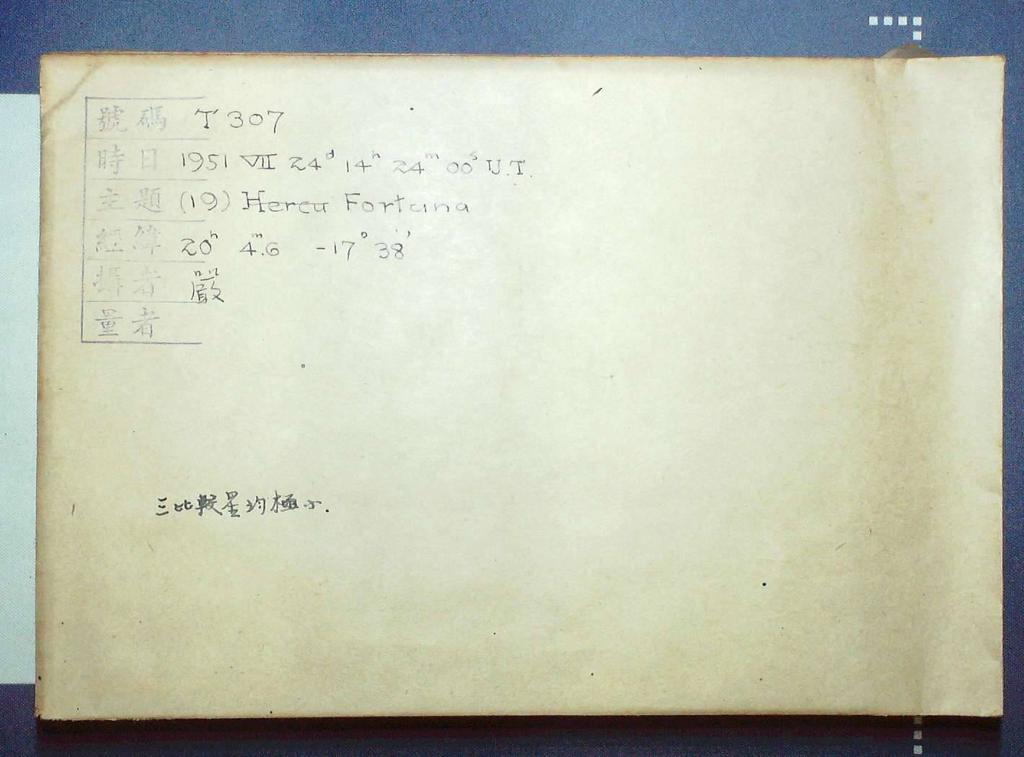 號碼 T 307
時日 1951 VII 24ᵈ 14ʰ 24ᵐ 00ˢ U.T.
主題 (19) Hercu Fortuna
經緯 20ʰ 4ᵐ.6 -17° 38'
攝者 嚴
量者
三比較星均極小.